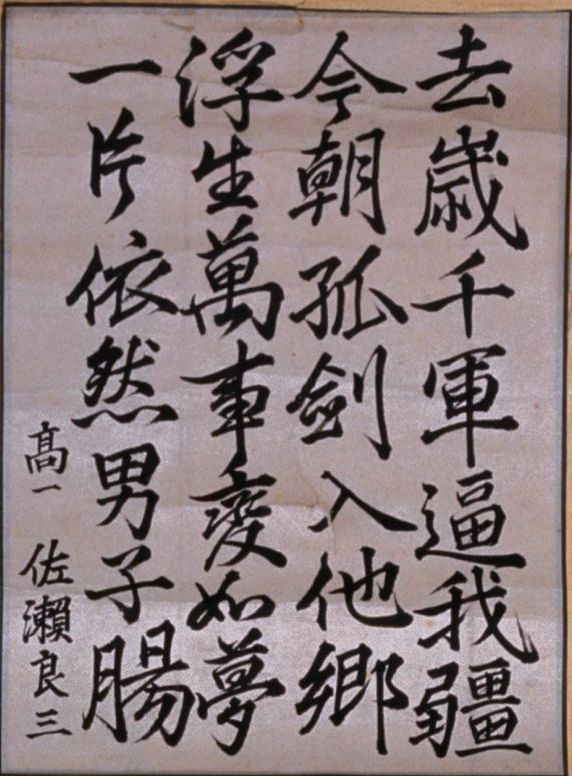 去歳千軍逼我疆
今朝孤剣入他郷
浮生萬事変如夢
一片依然男子腸
高一 佐瀬良三